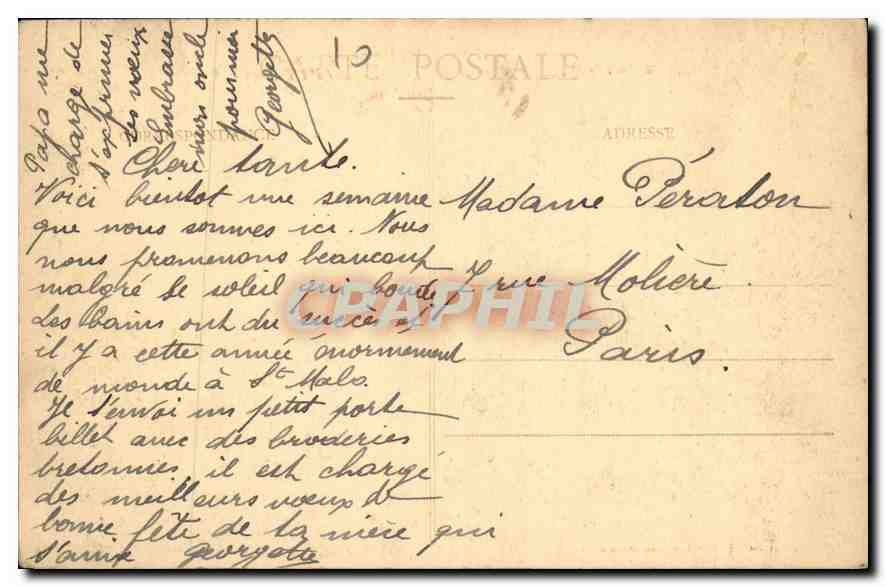 CARTE POSTALE
CORRESPONDANCE
ADRESSE
Chere tante.
Voici bientot une semaine
que nous sommes ici. Nous
nous promenons beaucoup
malgré le soleil qui boude
Les bains ont du succès et
il y a cette année énormement
de monde à St Malo.
Je t'envoi un petit porte
billet avec des broderies
bretonnes, il est chargé
des meilleurs voeux de
bonne fête de ta nièce qui
t'aime Georgette
Papa me
charge de
t'exprimer
ses voeux
Embrasse
mon oncle
pour moi
Georgette
10
Madame Pératon
7 rue Molière.
Paris.
CRAPHIL